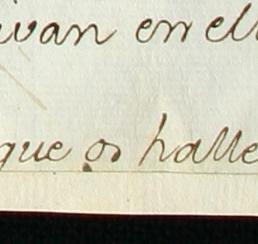 ivan en ell
que os halle